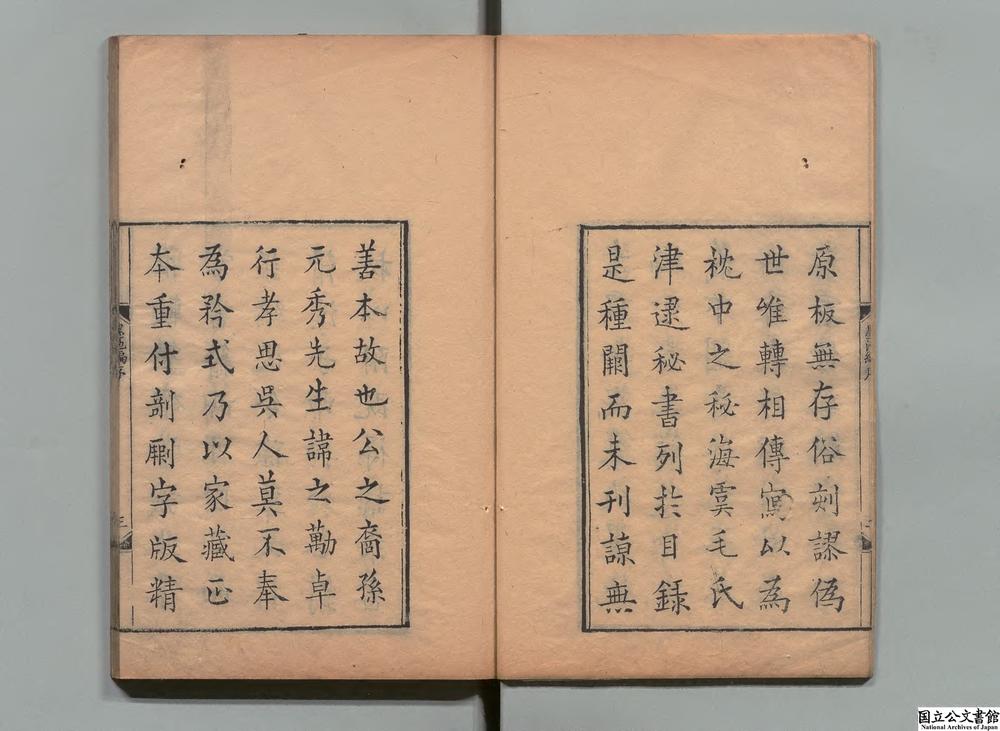 原板無存俗刻謬僞
世唯轉相傳寫以為
枕中之秘海虞毛氏
津逮秘書列於目錄
是種闕而未刊諒無
善本故也公之裔孫
元秀先生諱之勱卓
行孝思吳人莫不奉
為矜式乃以家藏正
本重付剞劂字版精
序
三
国立公文書館
National Archives of Japan